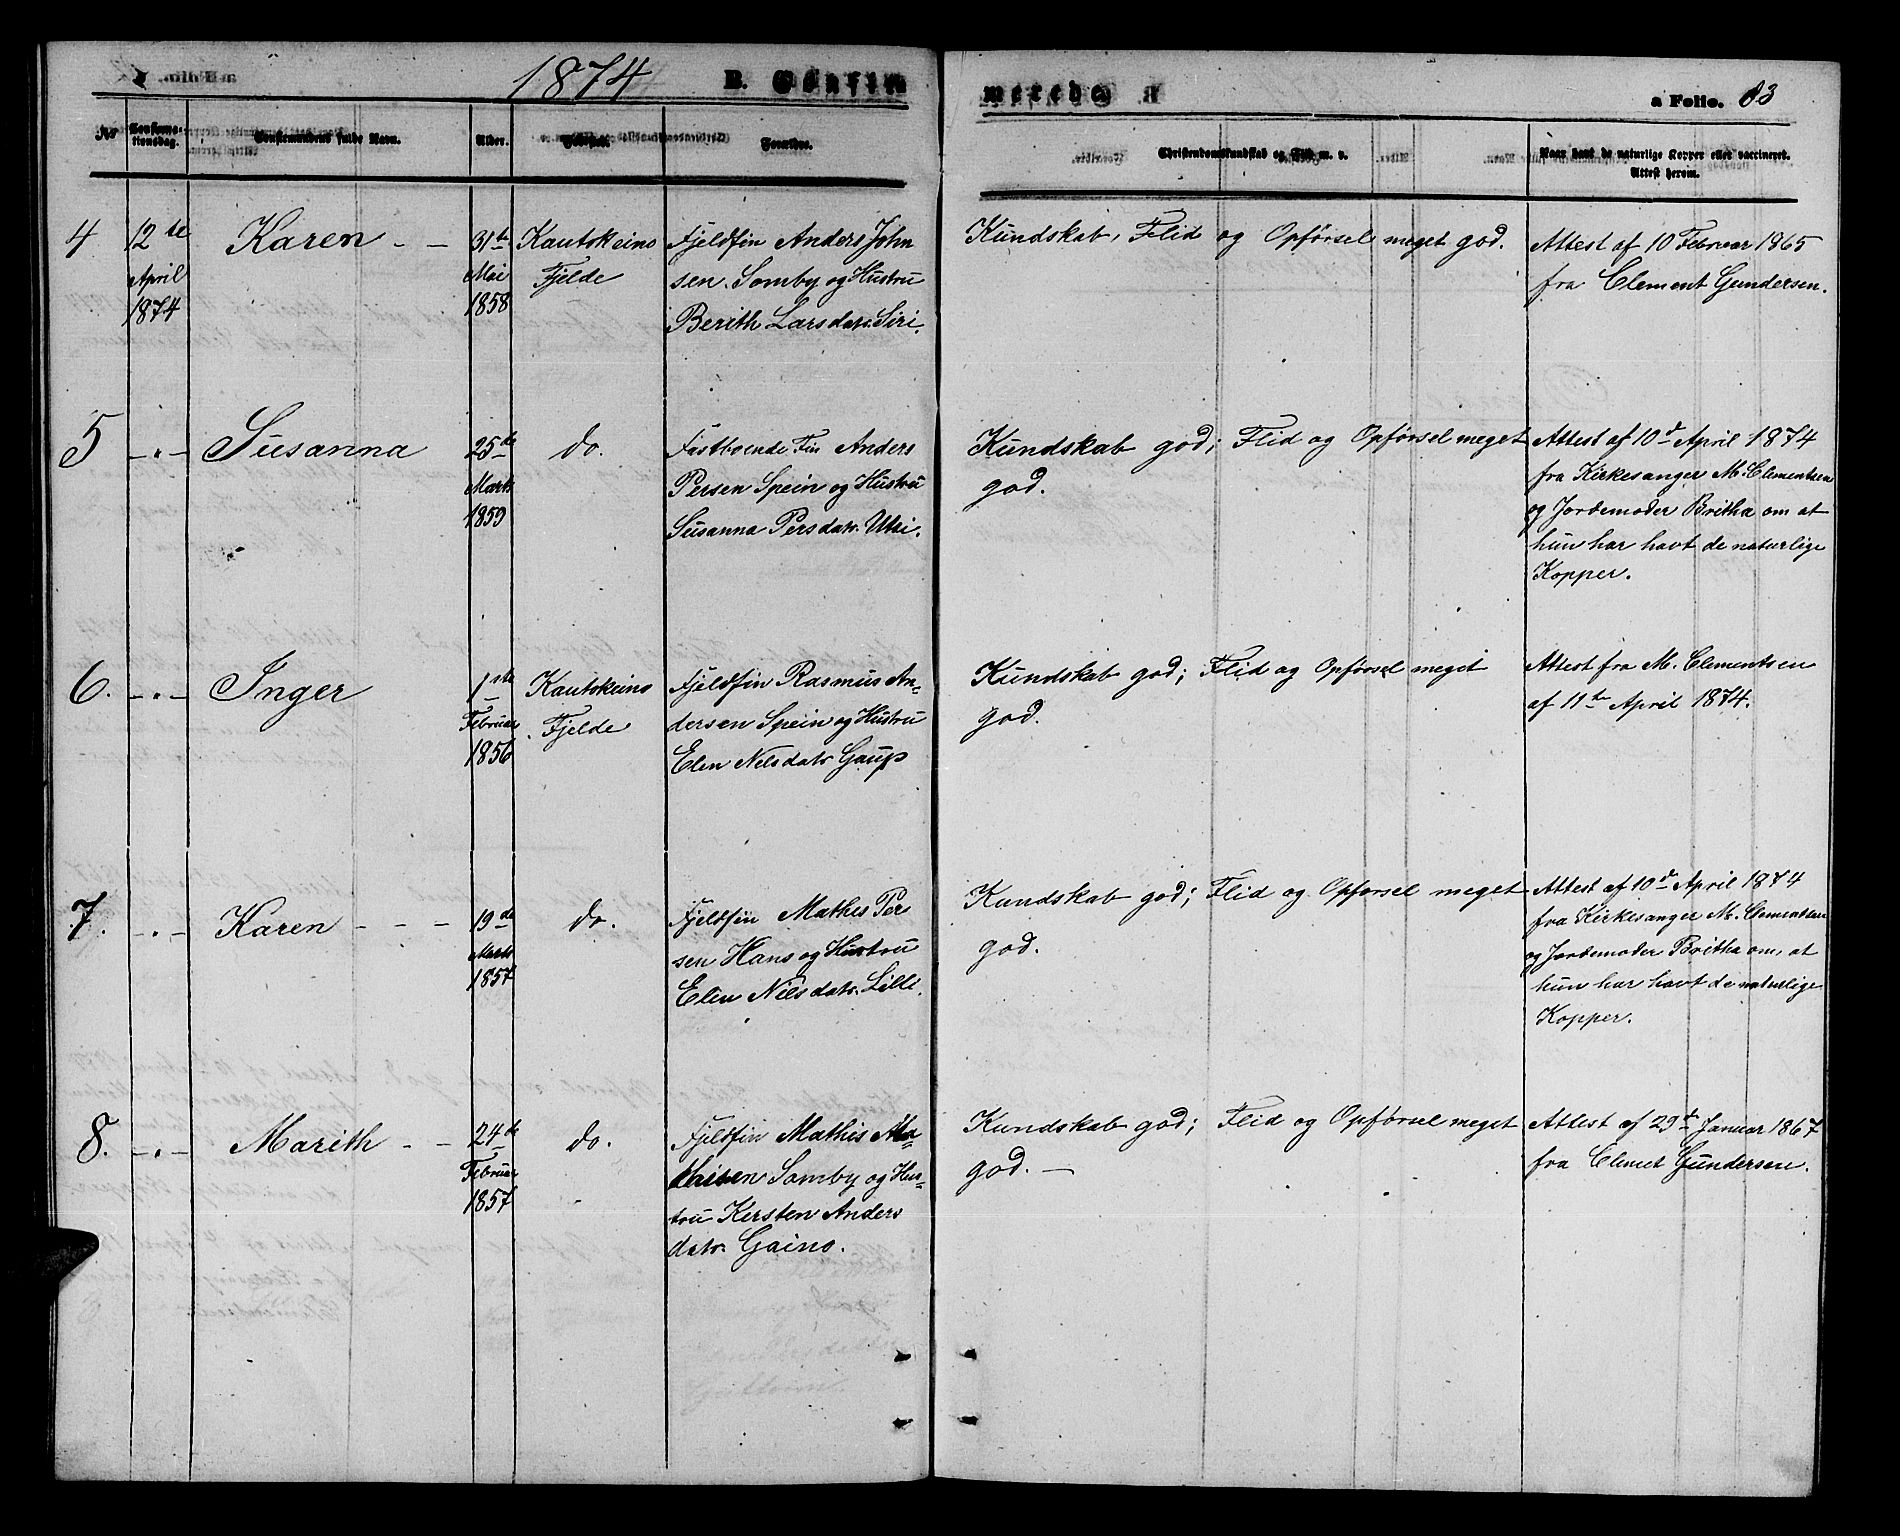 1874 B. Confirmerede a Folio. 83
Nr Confirmationsdag. Confirmandens fulde Navn. Alder. Fødested. Forældre. Christendomskundskab og Flid m. v. Naar havt de naturlige Kopper eller vaccineret. Attest herom.
4 12te April 1874 Karen - - 31te Mai 1858
Kautokeino
Fjelde
Fjeldfin Anders John
sen Somby og Hustru
Berith Larsdatr. Siri.
Kundskab, Flid og Opførsel meget god.
Attest af 10 Februar 1865
fra Clement Gundersen.
5 -"- Susanna 25de Marts 1859 do.
Fastboende Fin Anders
Persen Spein og Hustru
Susanna Persdatr. Utsi.
Kundskab god; Flid og Opførsel meget
god.
Attest af 10d April 1874
fra Kirkesanger M. Clementsen
og Jordemoder Britha om at
hun har havt de naturlige
Kopper.
6. -"- Inger 1ste Februar 1856
Kautokeino
Fjelde
Fjeldfin Rasmus An-
dersen Spein og Hustru
Elen Nilsdatr Gaup
Kundskab god; Flid og Opførsel meget
god.
Attest fra M. Clementsen
af 11te April 1874.
7. -"- Karen - - - 19de Marts 1857 do.
Fjeldfin Mathis Per
sen Hans og Hustru
Elen Nilsdatr. Lilli.
Kundskab god; Flid og Opførsel meget
god.
Attest af 10d April 1874
fra Kirkesanger M. Clementsen
og Jordemoder Britha om, at
hun har havt de naturlige
Kopper.
8. -"- Marith - - 24de Februar 1857 do.
Fjeldfin Mathis Ma-
thisen Somby og Hus-
tru Kersten Anders
datr. Gaino.
Kundskab god; Flid og Opførsel meget
god. -
Attest af 29d Januar 1867
fra Clemet Gundersen.